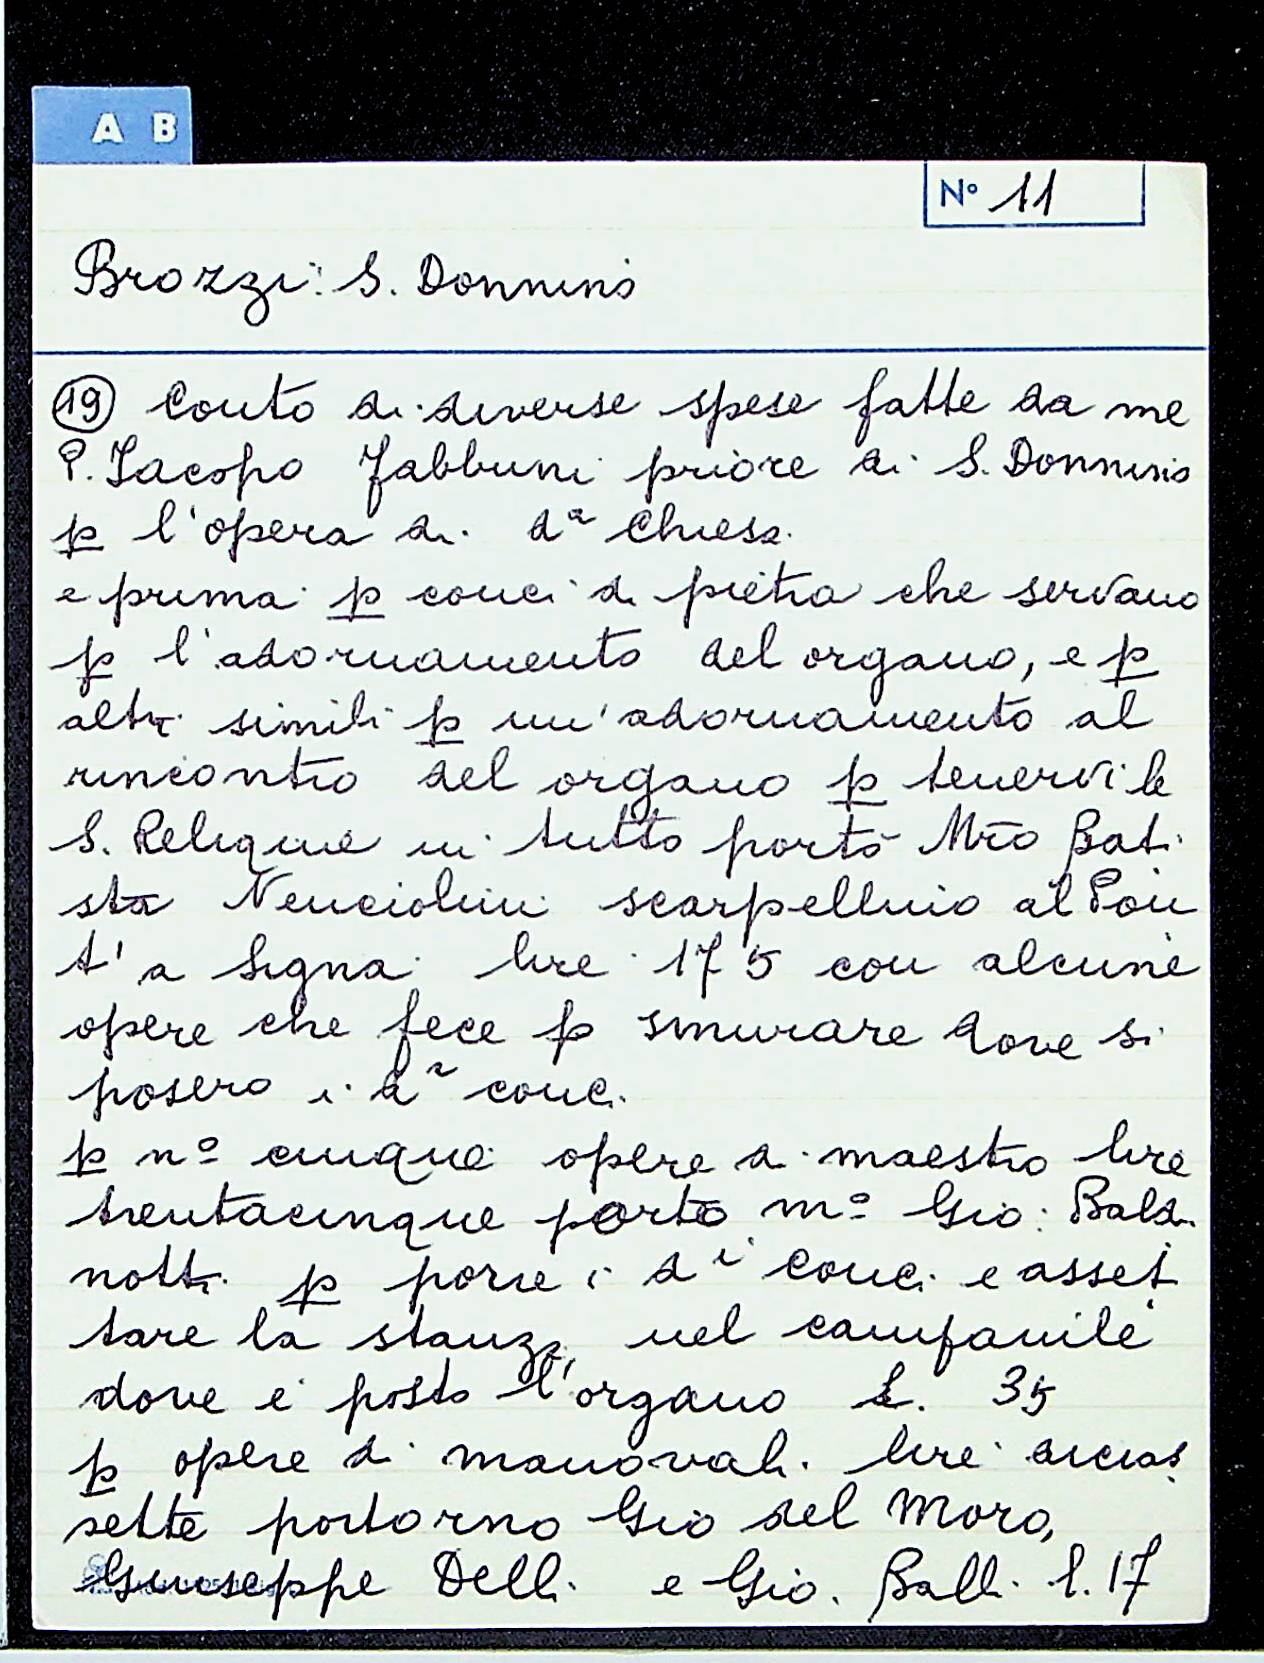 A B
Nº 11
Brozzi: S. Donnino
19 Conto di diverse spese fatte da me
P. Jacopo Fabbrini priore di S. Donnino
p l'opera di dª Chiesa.
e prima p conci di pietra che servano
p l'adornamento del organo, e p
altri simili p un'adornamento al
rincontro del organo p tenervi le
S. Relique in tutto portò Mro Bati
sta Nenciolini scarpellino al Pon
t' a Signa lire 175 con alcune
opere che fece p smurare dove si
posero i di conci.
p nº cinque opere di maestro lire
trentacinque portò mº Gio: Baldi
notti p porre i di conci e asset
tare la stanza nel campanile
dove è posto l'organo L. 35
p opere di manovali lire dicias
sette portorno Gio del Moro,
Giuseppe Delli e Gio. Balli l. 17